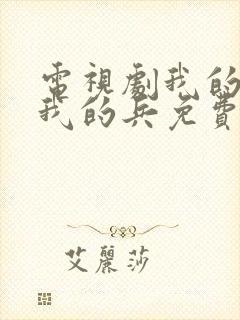 電視劇我的
我的兵免費
艾麗莎